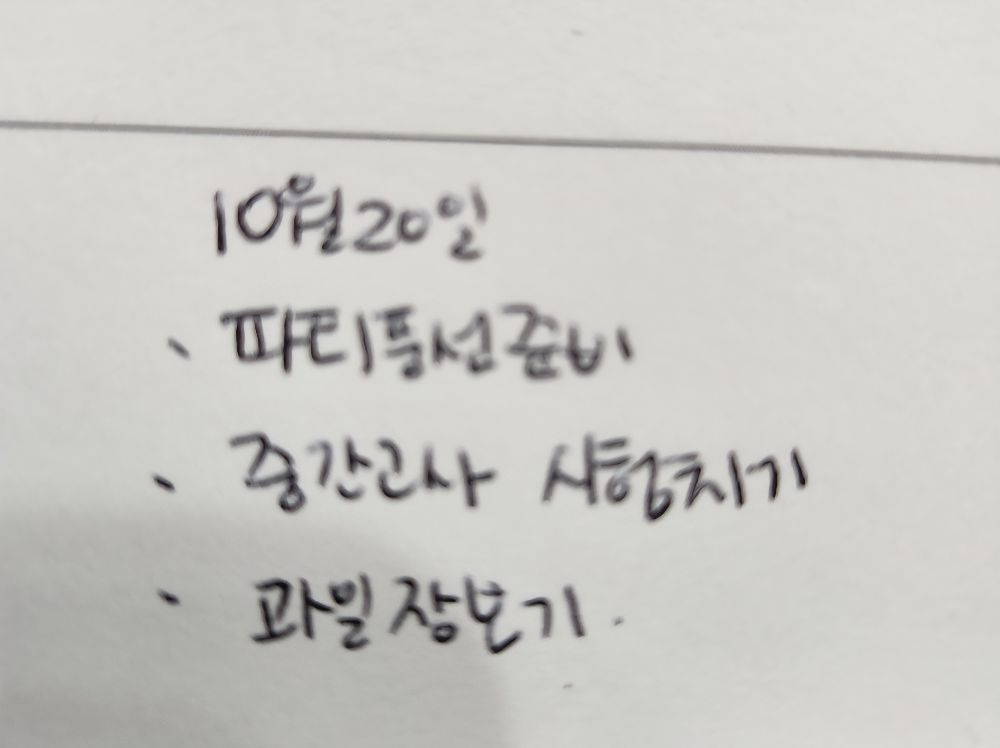 10월20일
· 파티풍선준비
· 중간고사 시험치기
· 과일장보기.